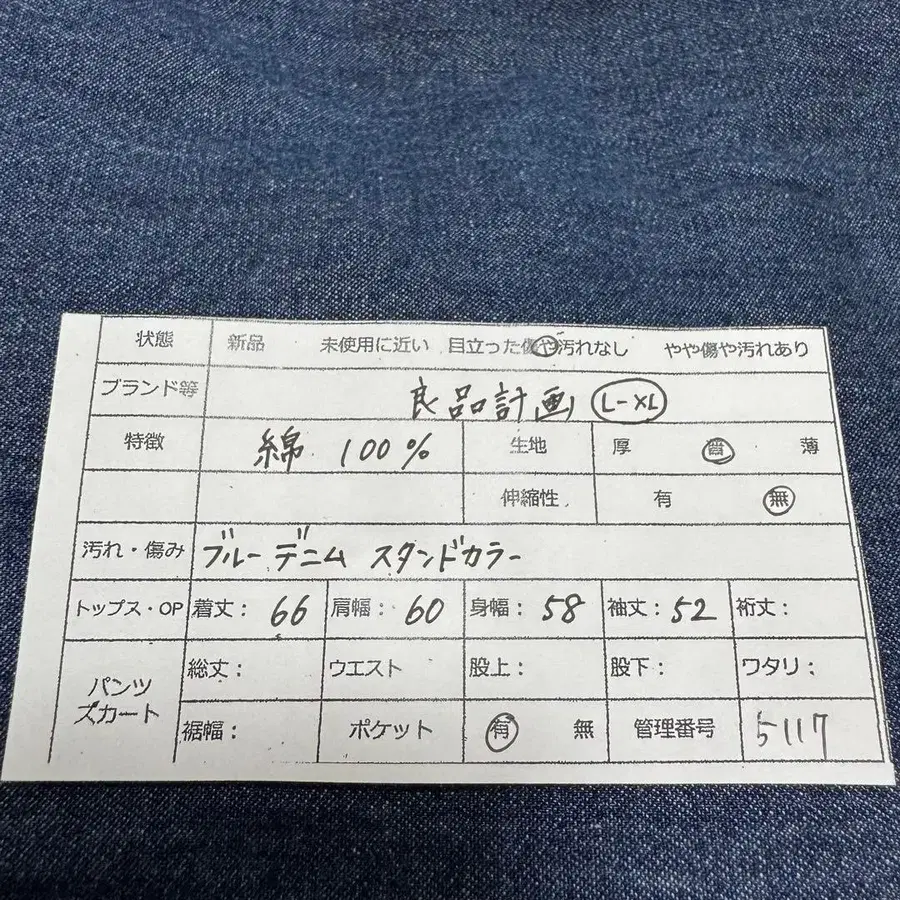 状態 新品 未使用に近い 目立った傷や汚れなし やや傷や汚れあり
ブランド等 良品計画 L-XL
特徴 綿 100% 生地 厚 普 薄
伸縮性 有 無
汚れ・傷み ブルーデニム スタンドカラー
トップス・OP 着丈: 66 肩幅: 60 身幅: 58 袖丈: 52 裄丈:
パンツ スカート 総丈: ウエスト 股上: 股下: ワタリ:
裾幅: ポケット 有 無 管理番号 5117